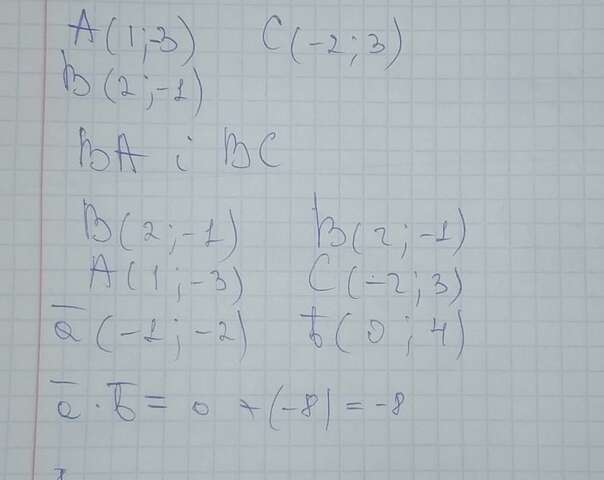 A(1;-3) C(-2;3)
B(2;-1)
BA i BC
B(2;-1) B(2;-1)
A(1;-3) C(-2;3)
a̅(-1;-2) b̅(0;4)
a̅·b̅ = 0 + (-8) = -8